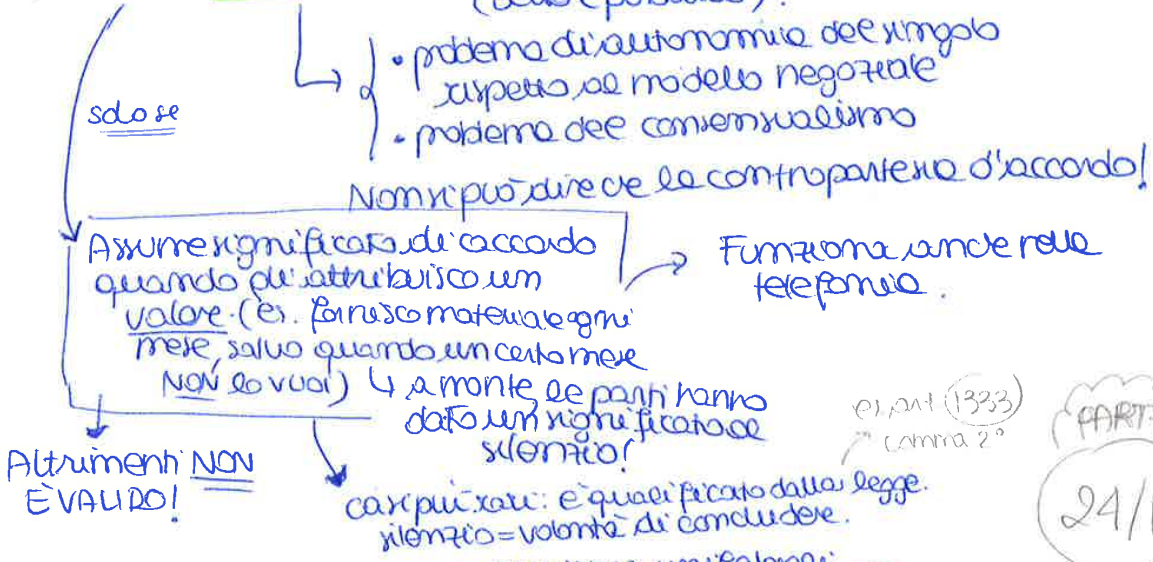 • problema di autonomia del singolo
rispetto al modello negoziale
• problema del consensualismo
solo se
Non si può dire che la controparte sia d'accordo!
Assume significato di accordo
quando gli attribuisco un
valore. (es. fornisco materiale ogni
mese, salvo quando un certo mese
NON lo vuoi)
↳ a monte le parti hanno
dato un significato al
silenzio!
Funziona anche nella
telefonia.
Altrimenti NON
È VALIDO!
es. art (1333)
comma 2°
casi più rari: è qualificato dalla legge.
silenzio = volontà di concludere.
PART
24/